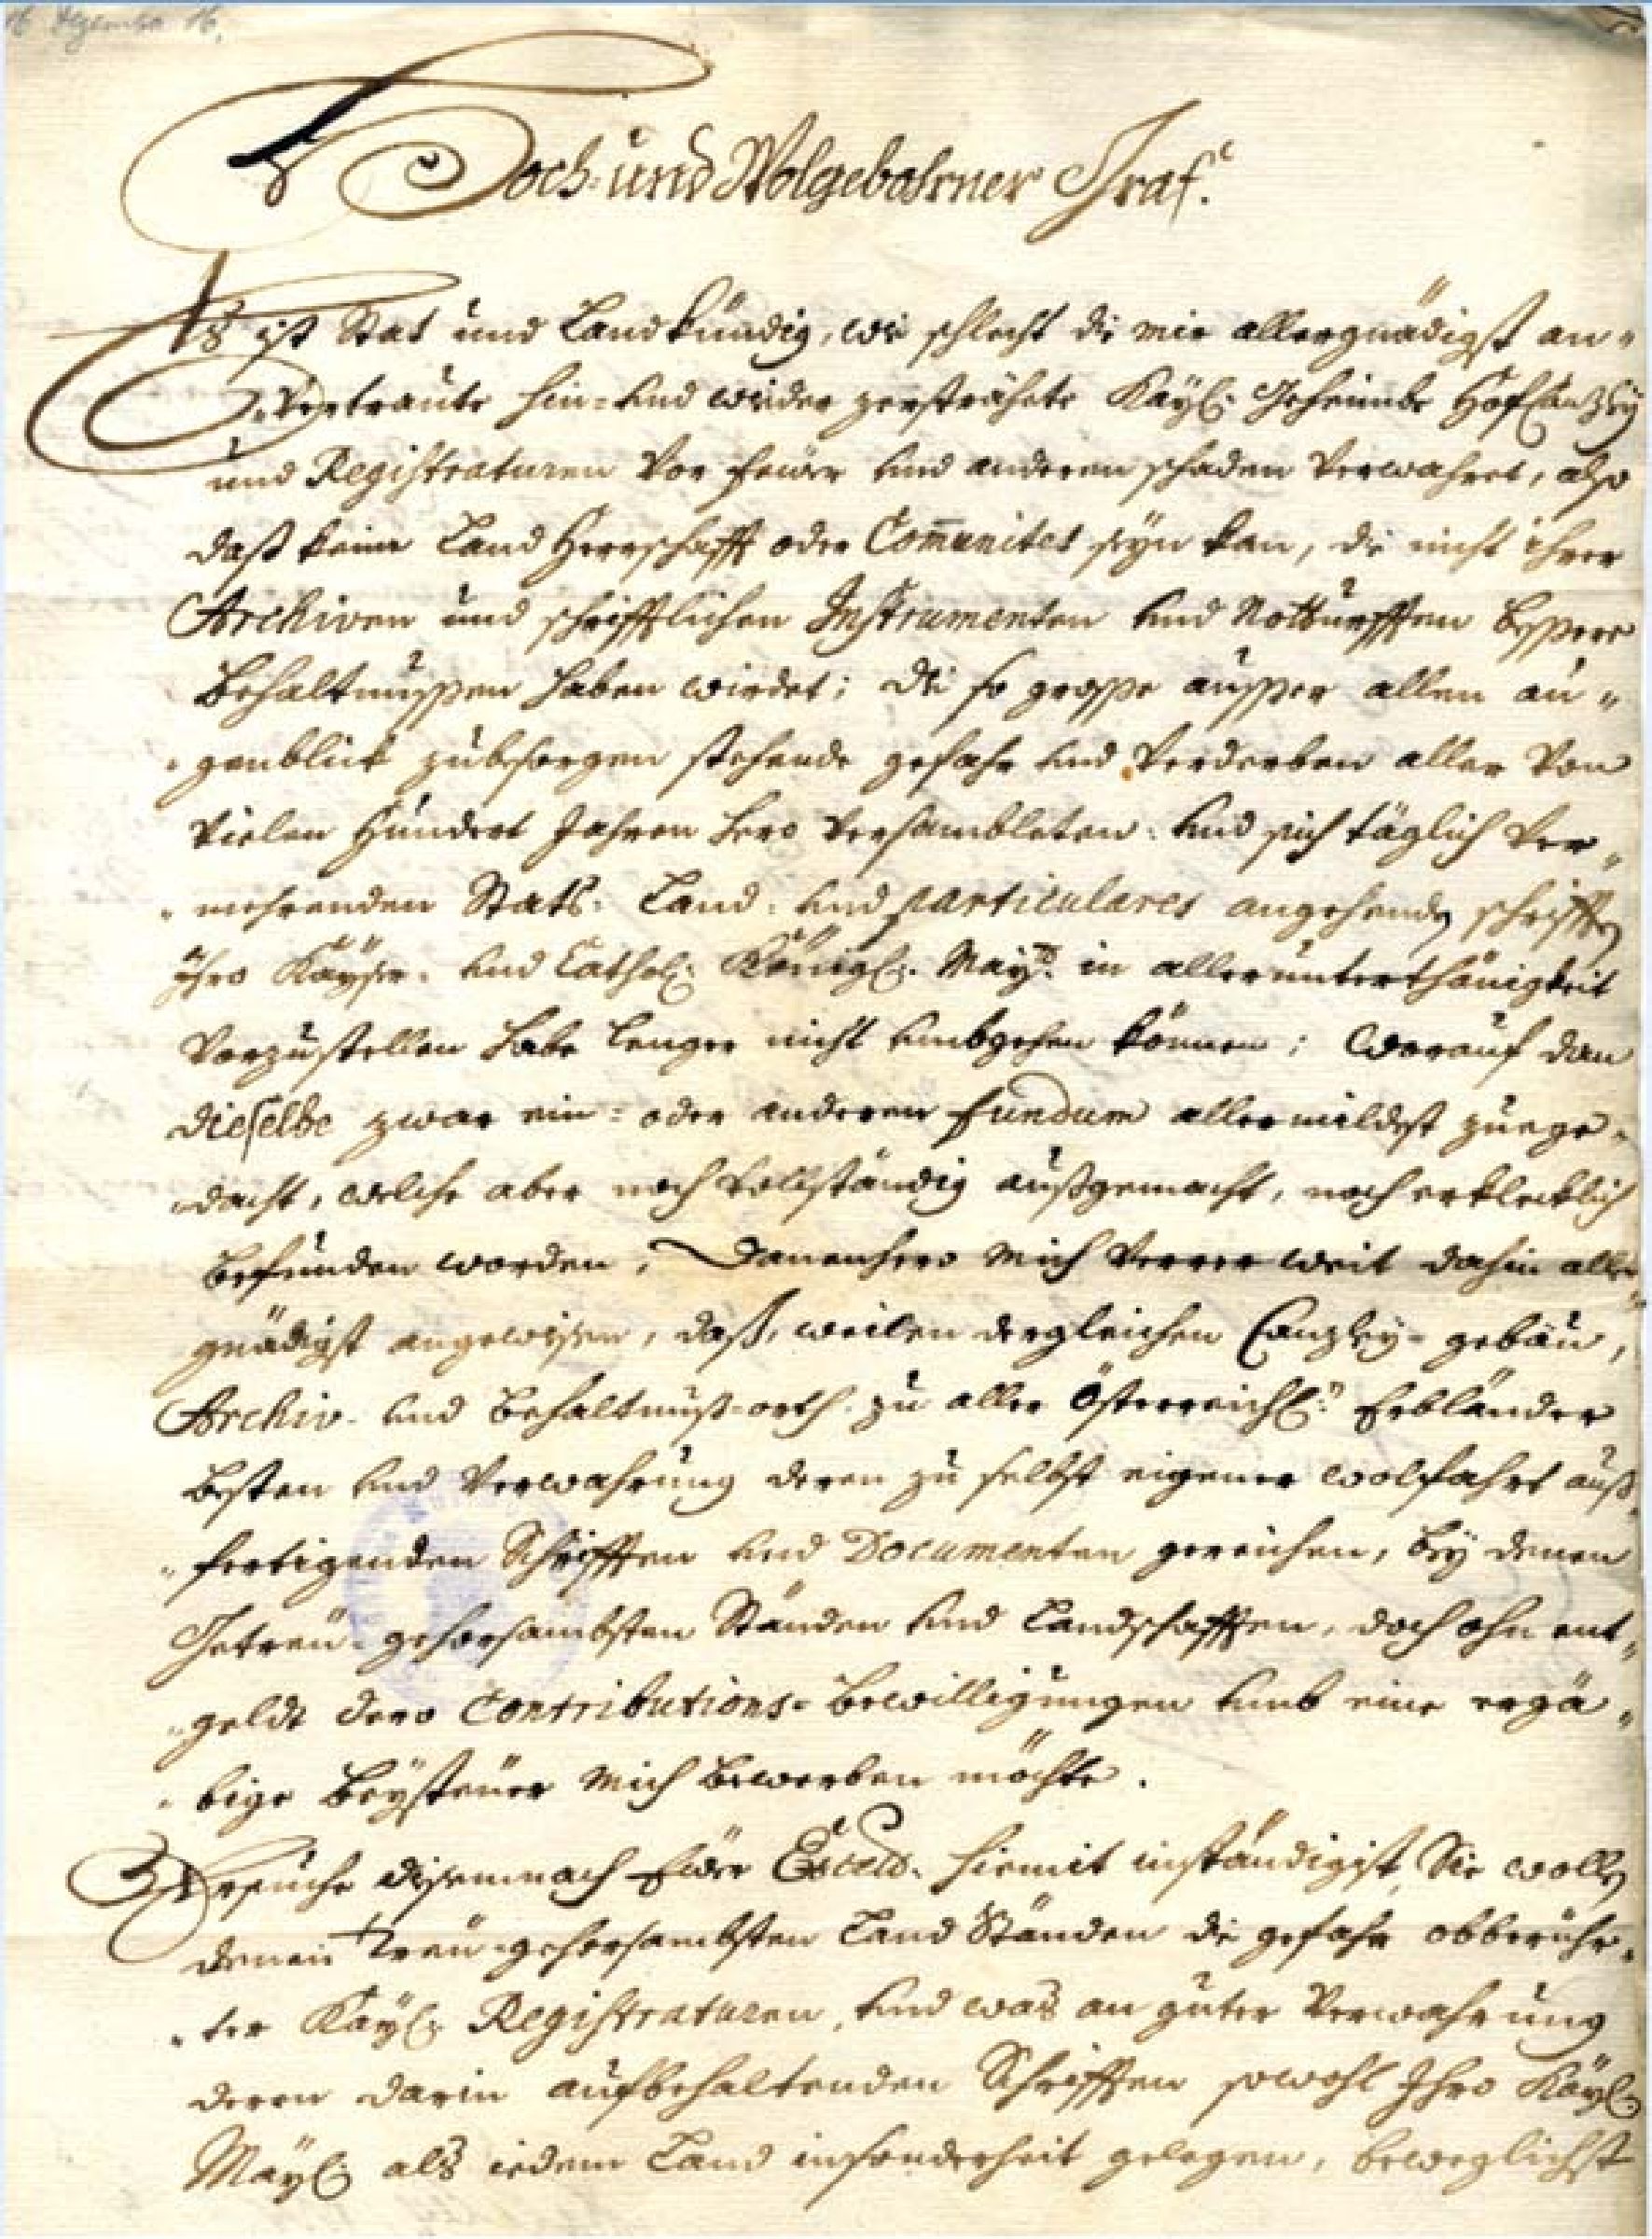 16 Dezember 16.
Hoch- und Wolgebohrner Graf.
Es ist Stat und Landkündig, wie schlecht die mir allergnädigst an-
vertraute hin- und wieder zersträhete Kayl. Geheimbe HofCanzley
und Registraturen vor feüer und anderen schaden verwahret, also
daß keine Land Herrschafft oder Com̄unitet seyn kan, die nicht ihrer
Archiven und schrifftlichen Instrumenten und Notturfften bessere
Behaltnussen haben wirdet; die so grosse ausser allen au-
genblick zubsorgen stehende gefahr und Verderben aller von
vielen Hundert Jahren hero versambleten und sich täglich ver-
mehrenden Stats- Land- und particulares angehenden schrifften
Ihro Kayser- und Cathol. Königl. May: in aller unterthänigkeit
vorzustellen habe lenger nicht umbgehen können; Worauf dan
dieselbe zwar ein- oder anderen fundum allermildest zuege-
dacht, welche aber noch vollständig außgemacht, noch erklecklich
befunden worden, Dannenhero mich ferrer weit dahin aller-
gnädigst angewisen, daß, weilen dergleichen Canzley-gebäu,
Archiv- und Behaltnuß-orth zu aller Österreichl. Erbländer
besten und Verwahrung deren zu selbst eigener wolfahrt auß-
fertigenden Schrifften und Documenten gereichen, bey denen
Getreu-gehorsambsten Ständen und Landschafften, doch ohn ent-
geldt dero Contributions-Bewilligungen umb eine ergä-
bige Beysteüer mich bewerben möchte.
Ersuche disemnach Euer Excell. hiemit inständigist, Sie wollen
denen treu-gehorsambsten Land Ständen die gefahr obberühr-
ter Kayl. Registraturen, und was an guter Verwahrung
deren darin aufbehaltenden Schrifften sowohl Ihro Kayl.
Mayl. als iedem Land insonderheit gelegen, beweglichst